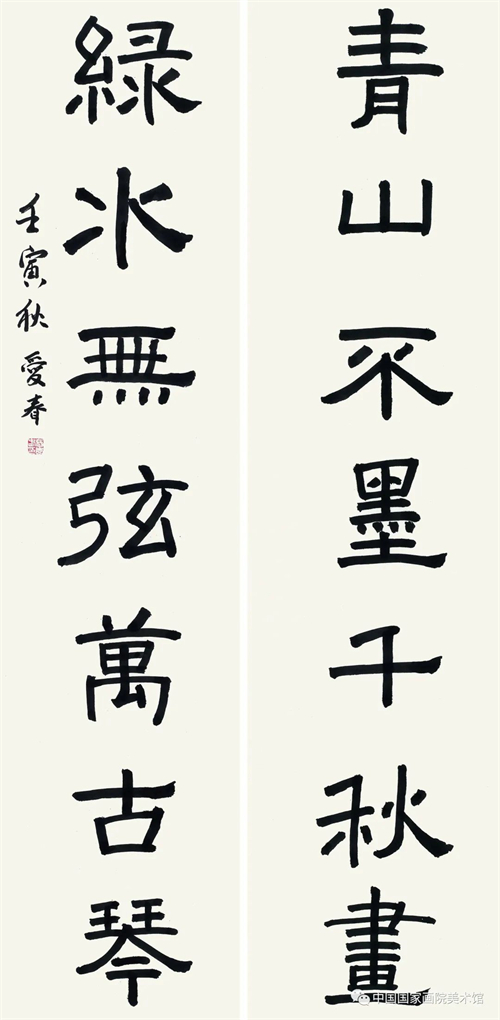 青山不墨千秋畫
綠水無弦萬古琴
壬寅秋 愛春
中国国家画院美术馆